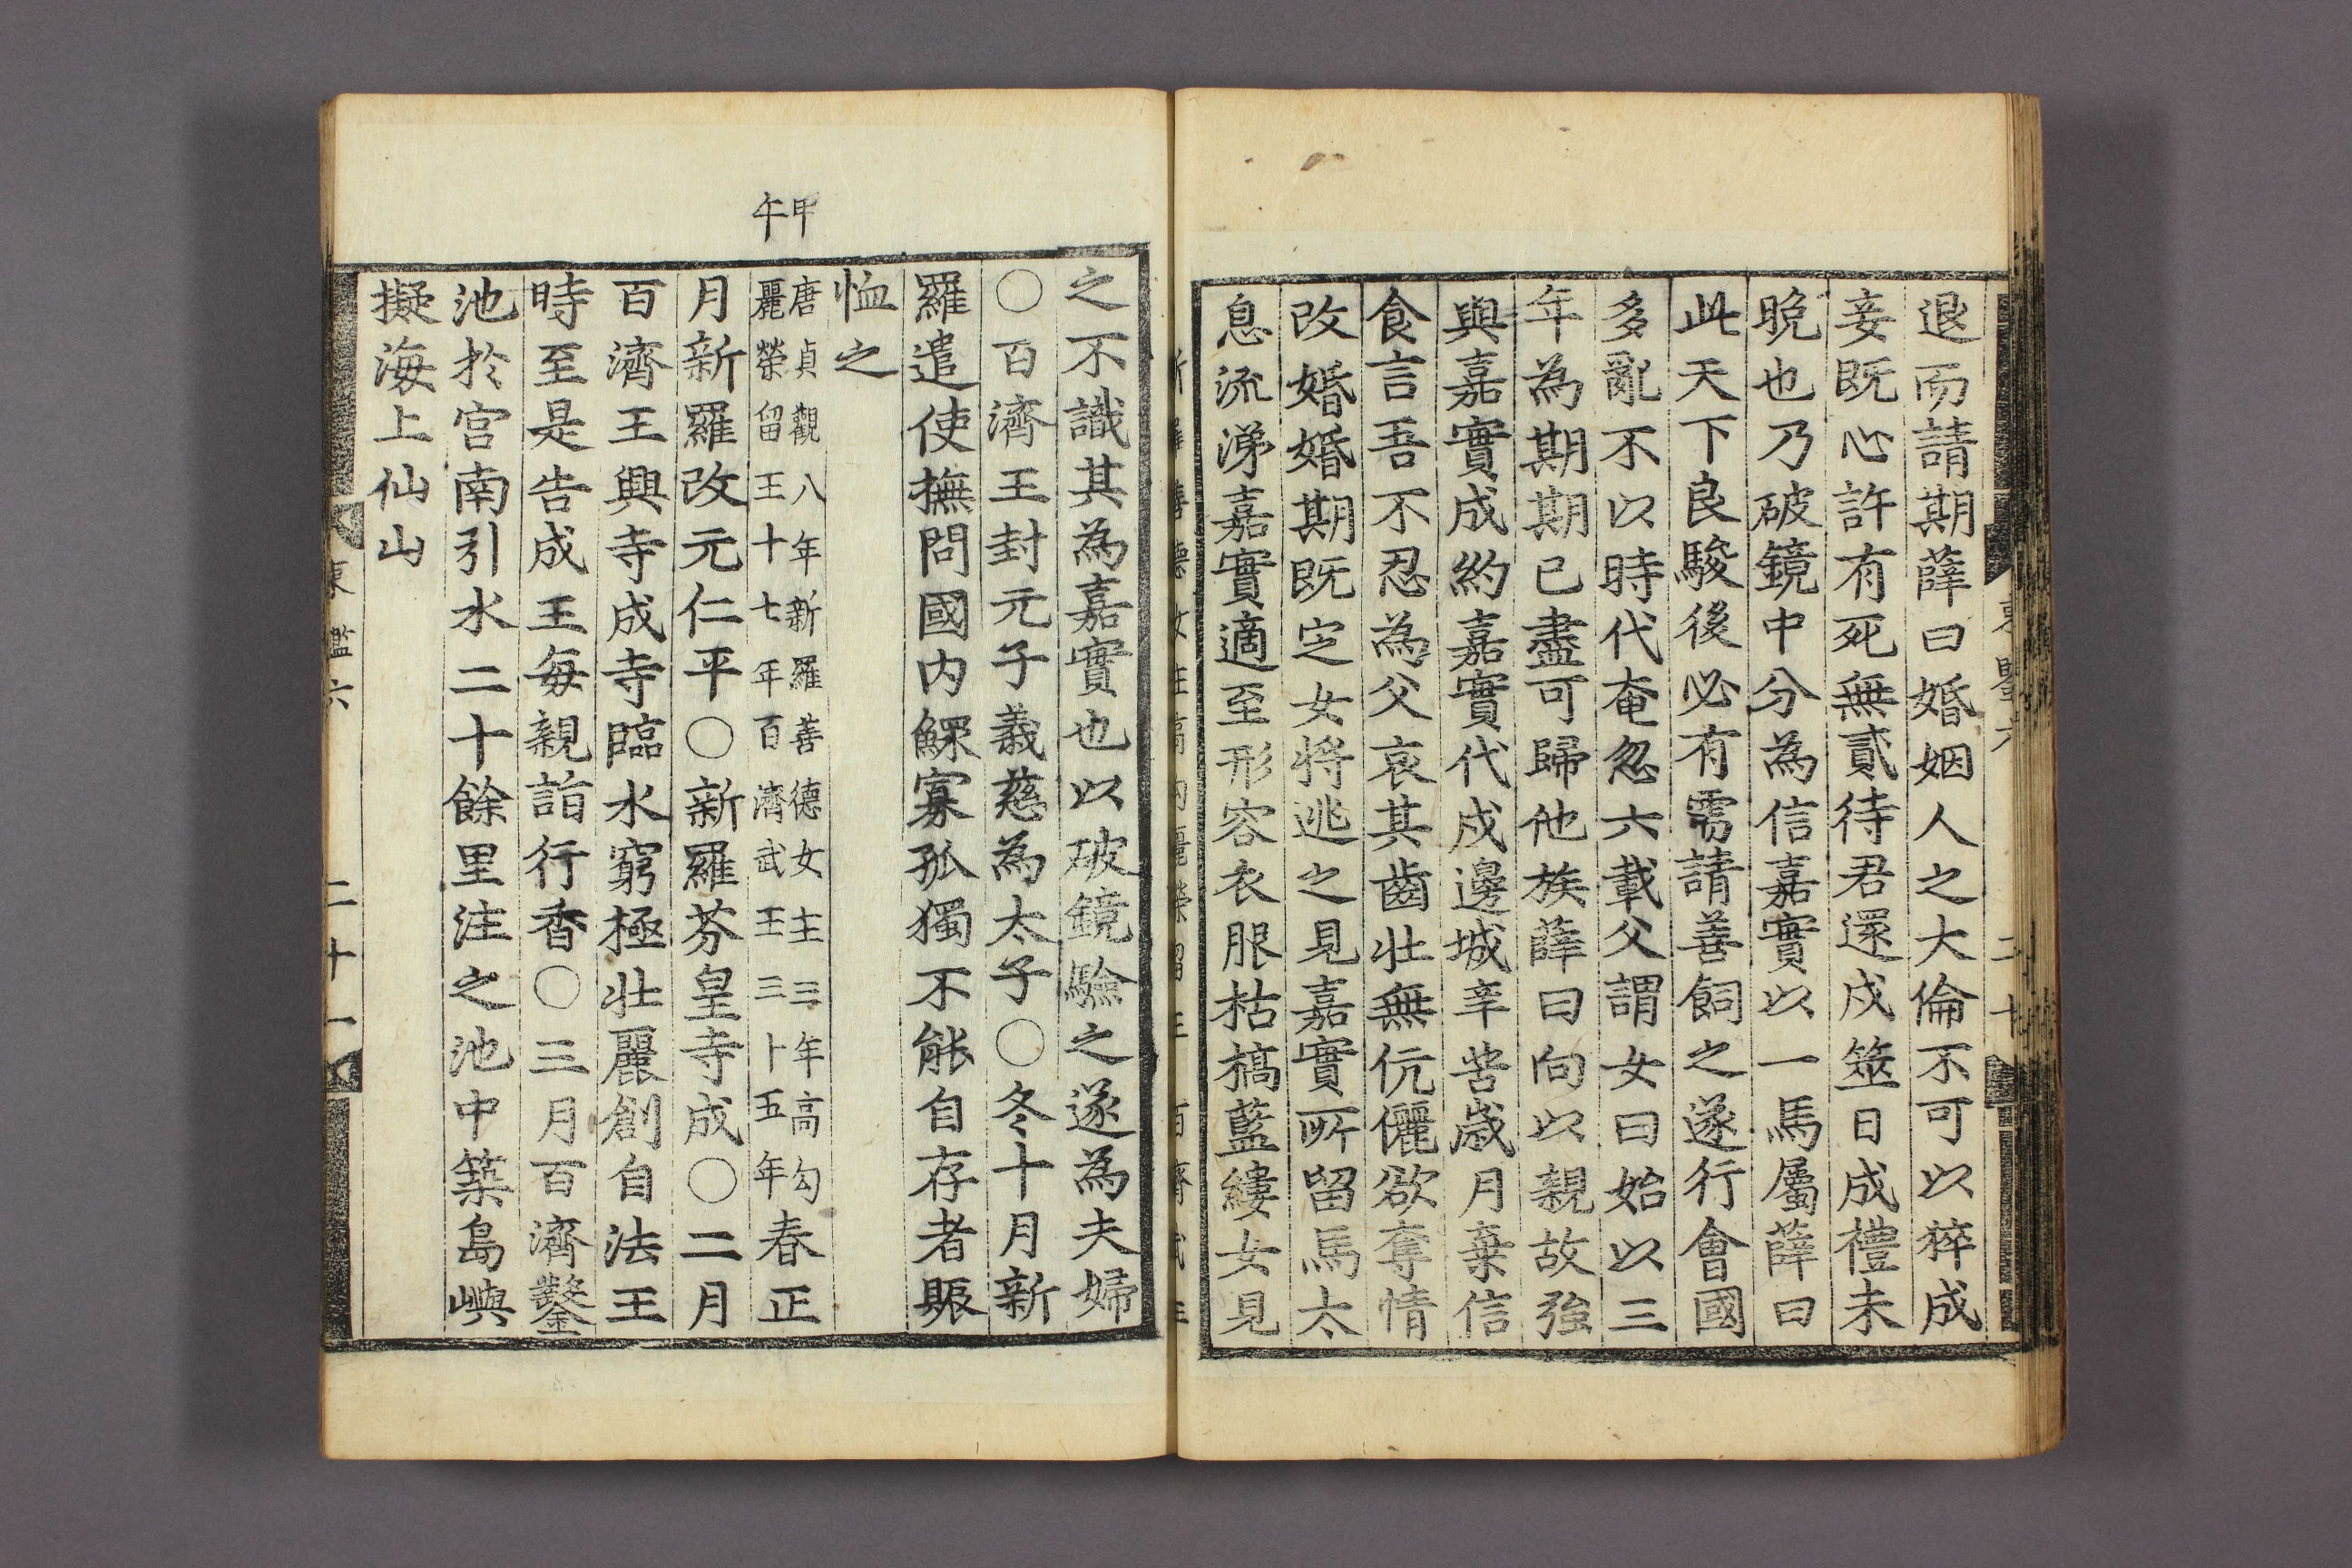 退而請期薛曰婚姻人之大倫不可以猝成
妾既心許有死無貳待君還戍筮日成禮未
晩也乃破鏡中分為信嘉實以一馬屬薛曰
此天下良駿後必有需請善飼之遂行會國
多亂不以時代奄忽六載父謂女曰始以三
年為期期已盡可歸他族薛曰向以親故強
與嘉實成約嘉實代戍邊城辛苦歲月棄信
食言吾不忍為父哀其齒壯無伉儷欲奪情
改婚婚期既定女將逃之見嘉實所留馬太
息流涕嘉實適至形容衣服枯槁藍縷女見
之不識其為嘉實也以破鏡驗之遂為夫婦
〇百濟王封元子義慈為太子〇冬十月新
羅遣使撫問國内鰥寡孤獨不能自存者賑
恤之
甲午
唐貞觀八年新羅善德女主三年高勾
麗榮留王十七年百濟武王三十五年春正
月新羅改元仁平〇新羅芬皇寺成〇二月
百濟王興寺成寺臨水窮極壯麗創自法王
時至是告成王每親詣行香〇三月百濟鑿
池於宮南引水二十餘里注之池中築島嶼
擬海上仙山
東鑑六 二十一